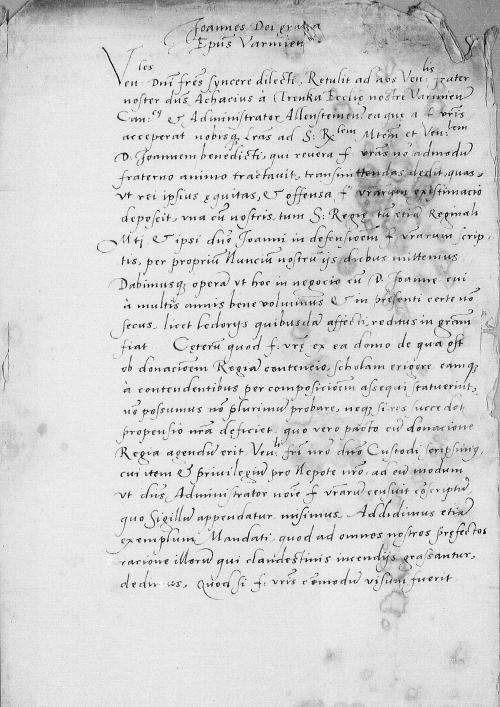 Joannes Dei gratia
Epus Varmien
Vles
Ven. Dni fres syncere dilecti, Retulit ad nos Venlis frater
noster dns Achacius à Trenka Ecclie nostre Varmien
Cancus & Administrator Allensteinen ea que a f. vris
acceperat nobisq lras ad S: Rlem Mtem et Venlem
D. Joannem benedicti, qui revera f vras no admodu
fraterno animo tractauit, transmittendas dedit, quas
vt rei ipsius equitas, & offensa f vrarum existimacio
deposcit, vna cu nostris, tum S: Regie tu etia Reginali
Mti, & ipsi dno Joanni in defensioem f vrarum scrip,
tis, per propriu Nunciu nostru ijs diebus mittemus
Dabimusq opera vt hoc in negocio cu D. Joanne cui
à multis annis bene voluimus & in presenti certe no
secus, licet ledorijs quibusda affecti, reditus in gram
fiat Ceteru quod f. vre ex ea domo de qua est
ob donacioem Regia contencio, scholam erigere eamq
à contendentibus per composicioem assequi statuerint,
no possumus no plurimu probare, neq si res succedet
propensio nra deficiet. quo vero pacto cu donacione
Regia agendu erit Venli fri nro dno Custodi scripsimq,
cui item & privilegiu pro Nepote nro, ad eu modum
vt dns Administrator noie f vraru censuit coscriptu
quo Sigillu appendatur misimus. Addidimus etia
exemplum Mandati quod ad omnes nostros prefectos
racione illoru qui clandestinis incendijs grassantur,
dedimus, Quod si f. vris comodu visum fuerit